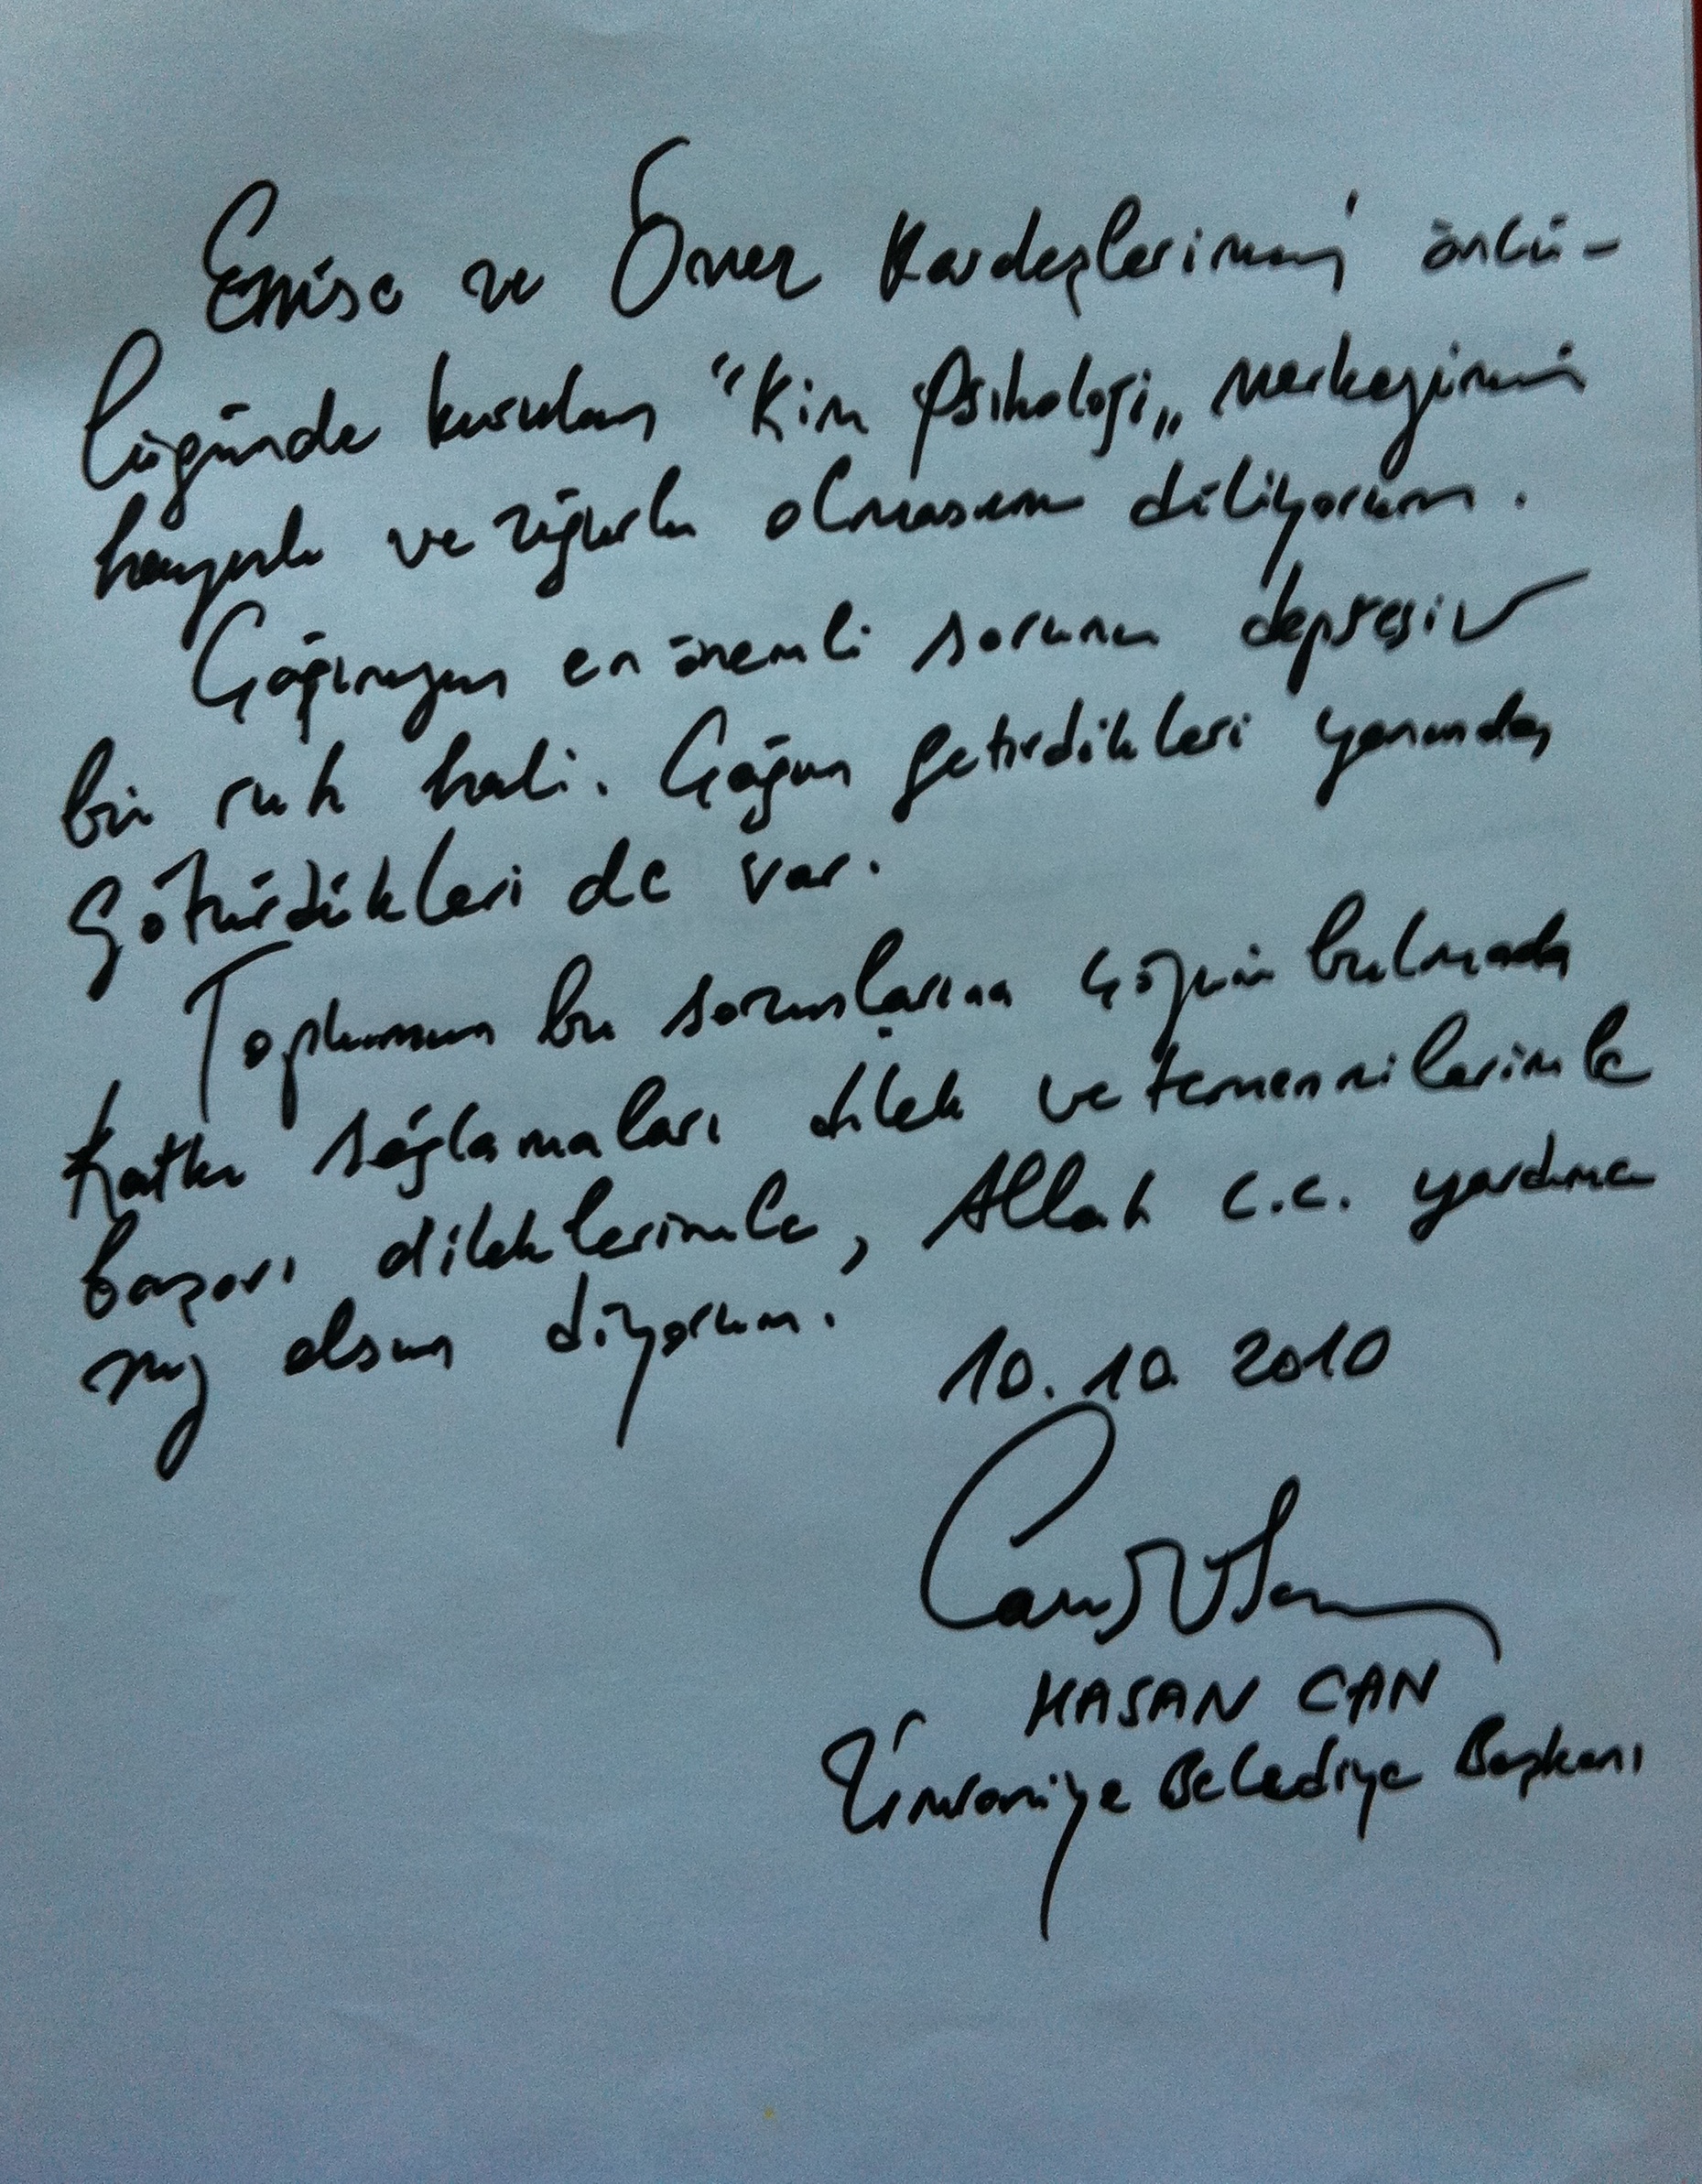 Enise ve Ömer Kardeşlerimin öncü-
lüğünde kurulan "Kim Psikoloji" merkezinin
hayırlı ve uğurlu olmasını diliyorum.
Çağımızın en önemli sorunu depresiv
bir ruh hali. Çağın getirdikleri yanında,
götürdükleri de var.
Toplumun bu sorunlarına çözüm bulmada
katkı sağlamaları dilek ve temennilerimle
başarı dileklerimle, Allah c.c. yardımcı
nız olsun diyorum.
10.10.2010
HASAN CAN
Ümraniye Belediye Başkanı